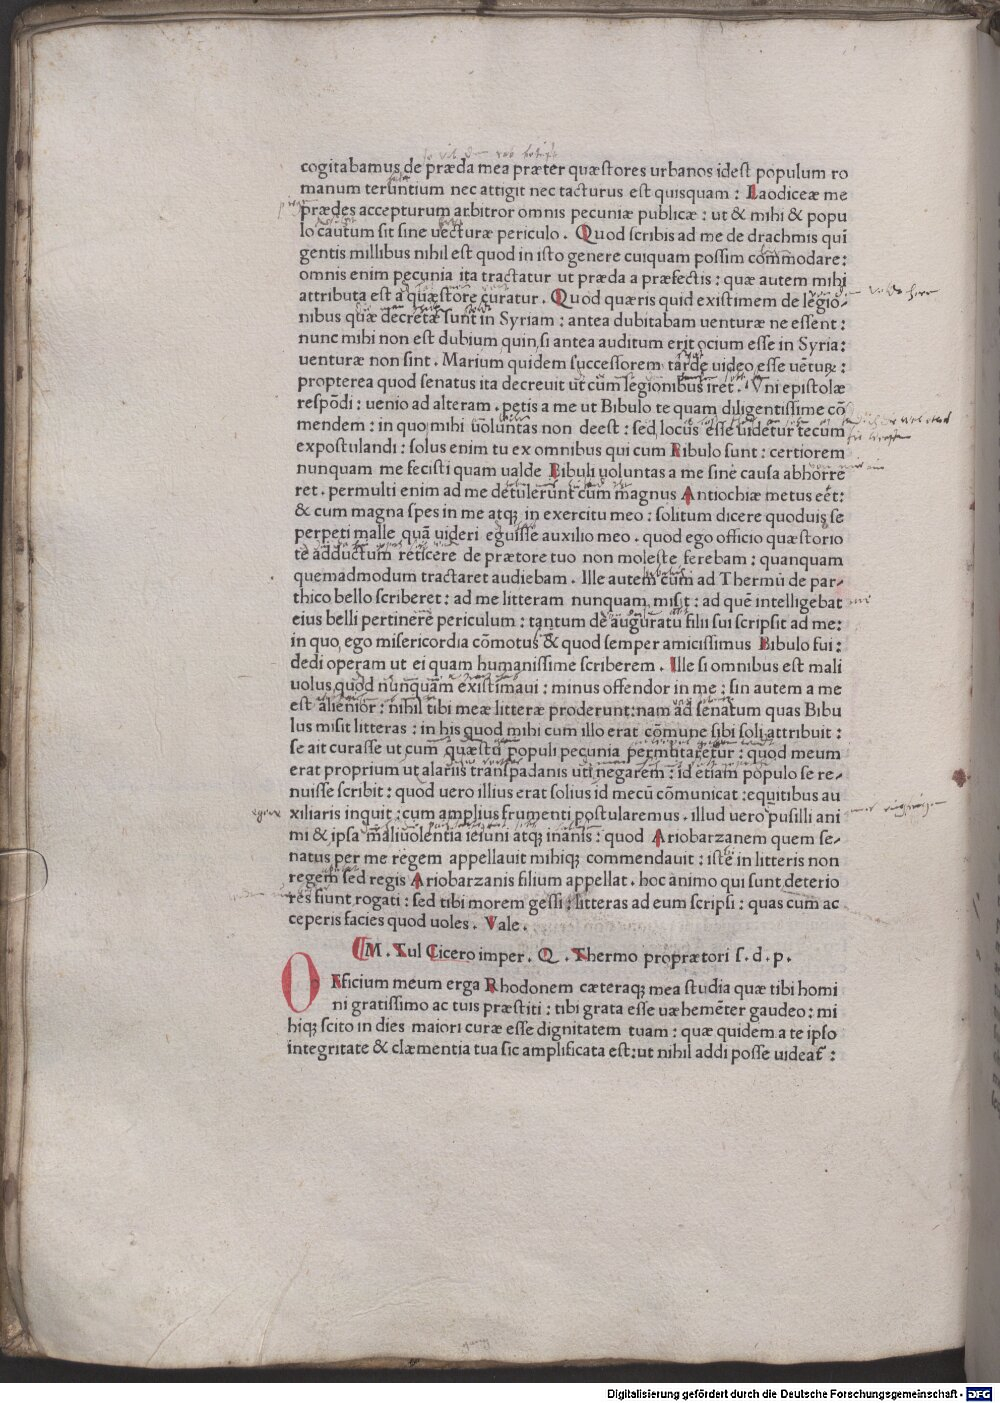 cogitabamus de præda mea præter quæstores urbanos idest populum ro
manum teruntium nec attigit nec tacturus est quisquam : Laodiceæ me
prædes accepturum arbitror omnis pecuniæ publicæ : ut & mihi & popu
lo cautum sit sine uecturæ periculo . Quod scribis ad me de drachmis qui
gentis millibus nihil est quod in isto genere cuiquam possim commodare :
omnis enim pecunia ita tractatur ut præda a præfectis : quæ autem mihi
attributa est a quæstore curatur . Quod quæris quid existimem de legio-
nibus quæ decretæ sunt in Syriam : antea dubitabam uenturæ ne essent :
nunc mihi non est dubium quin si antea auditum erit ocium esse in Syria :
uenturæ non sint . Marium quidem successorem tarde uideo esse uētuꝝ :
propterea quod senatus ita decreuit ut cum legionibus iret . Vni epistolæ
respōdi : uenio ad alteram . petis a me ut Bibulo te quam diligentissime cō
mendem : in quo mihi uoluntas non deest : sed locus esse uidetur tecum
expostulandi : solus enim tu ex omnibus qui cum Bibulo sunt : certiorem
nunquam me fecisti quam ualde Bibuli uoluntas a me sine causa abhorre
ret . permulti enim ad me detulerunt cum magnus Antiochiæ metus eēt :
& cum magna spes in me atqꝫ in exercitu meo : solitum dicere quoduis se
perpeti malle quā uideri eguisse auxilio meo . quod ego officio quæstorio
te adductum reticere de prætore tuo non moleste ferebam : quanquam
quemadmodum tractaret audiebam . Ille autem cum ad Thermū de par-
thico bello scriberet : ad me litteram nunquam misit : ad quē intelligebat
eius belli pertinere periculum : tantum de auguratu filii sui scripsit ad me :
in quo ego misericordia cōmotus & quod semper amicissimus Bibulo fui :
dedi operam ut ei quam humanissime scriberem . Ille si omnibus est mali
uolus quod nunquam existimaui : minus offendor in me : sin autem a me
est alienior : nihil tibi meæ litteræ proderunt : nam ad senatum quas Bibu
lus misit litteras : in his quod mihi cum illo erat cōmune sibi soli attribuit :
se ait curasse ut cum quæstu populi pecunia permutaretur : quod meum
erat proprium ut alariis transpadanis uti negarem : id etiam populo se re-
nuisse scribit : quod uero illius erat solius id mecū cōmunicat : equitibus au
xiliaris inquit : cum amplius frumenti postularemus . illud uero pusilli ani
mi & ipsa maliuolentia ieiuni atqꝫ inanis : quod Ariobarzanem quem se-
natus per me regem appellauit mihiqꝫ commendauit : iste in litteris non
regem sed regis Ariobarzanis filium appellat . hoc animo qui sunt deterio
res fiunt rogati : sed tibi morem gessi : litteras ad eum scripsi : quas cum ac
ceperis facies quod uoles . Vale .
M . Tul Cicero imper . Q . Thermo proprætori s . d . p .
Officium meum erga Rhodonem cæteraqꝫ mea studia quæ tibi homi
ni gratissimo ac tuis præstiti : tibi grata esse uæhemēter gaudeo : mi
hiqꝫ scito in dies maiori curæ esse dignitatem tuam : quæ quidem a te ipso
integritate & clæmentia tua sic amplificata est : ut nihil addi posse uideat̄ :
Digitalisierung gefördert durch die Deutsche Forschungsgemeinschaft - DFG